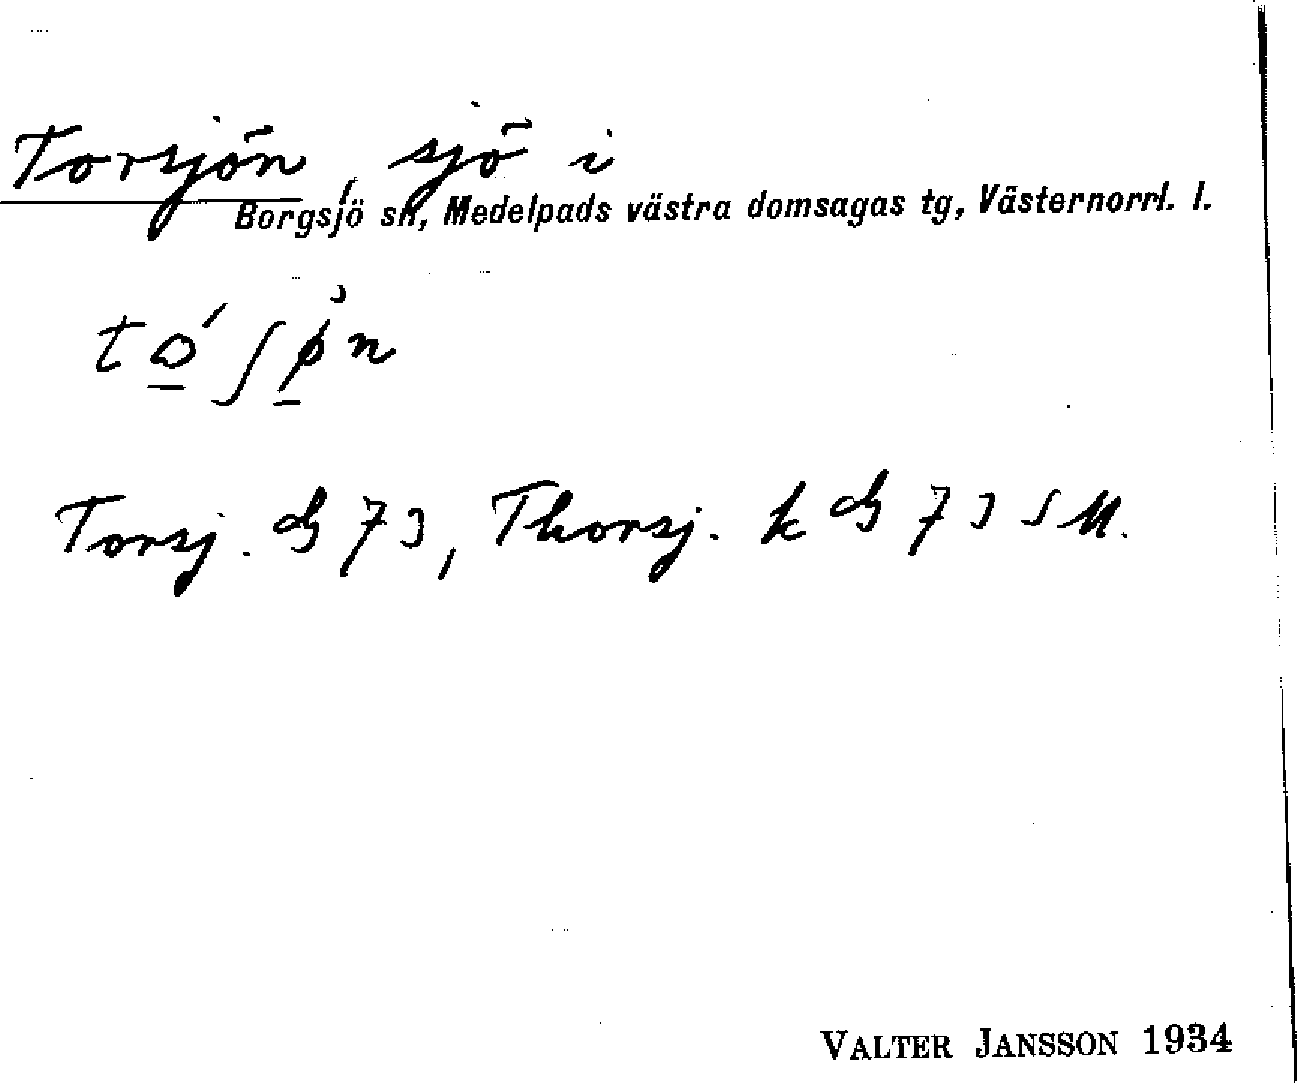 Torsjön, sjö i
Borgsjö sn, Medelpads västra domsagas tg, Västernorrl. l.
Torsj. 73, Thorsj. k 73 SM.
VALTER JANSSON 1934